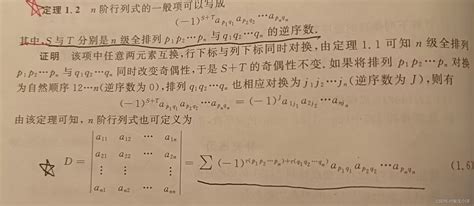 定理 1.2 n 阶行列式的一般项可以写成
(-1)^{S+T} a_{p_1q_1} a_{p_2q_2} ⋯ a_{p_nq_n}
其中, S 与 T 分别是 n 级全排列 p_1p_2⋯p_n 与 q_1q_2⋯q_n 的逆序数.
证明 该项中任意两元素互换,行下标与列下标同时对换,由定理 1.1 可知 n 级全排列
p_1p_2⋯p_n 与 q_1q_2⋯q_n 同时改变奇偶性,于是 S+T 的奇偶性不变. 如果将排列 p_1p_2⋯p_n 对换
为自然顺序 12⋯n(逆序数为 0),排列 q_1q_2⋯q_n 也相应对换为 j_1j_2⋯j_n(逆序数为 J),则有
(-1)^{S+T} a_{p_1q_1} a_{p_2q_2} ⋯ a_{p_nq_n} = (-1)^J a_{1j_1} a_{2j_2} ⋯ a_{nj_n}
由该定理可知, n 阶行列式也可定义为
D = | a_{11} a_{12} ⋯ a_{1n} |
| a_{21} a_{22} ⋯ a_{2n} |
| ⋮ ⋮ ⋮ |
| a_{n1} a_{n2} ⋯ a_{nn} | = ∑ (-1)^{τ(p_1p_2⋯p_n)+τ(q_1q_2⋯q_n)} a_{p_1q_1} a_{p_2q_2} ⋯ a_{p_nq_n} (1.6)